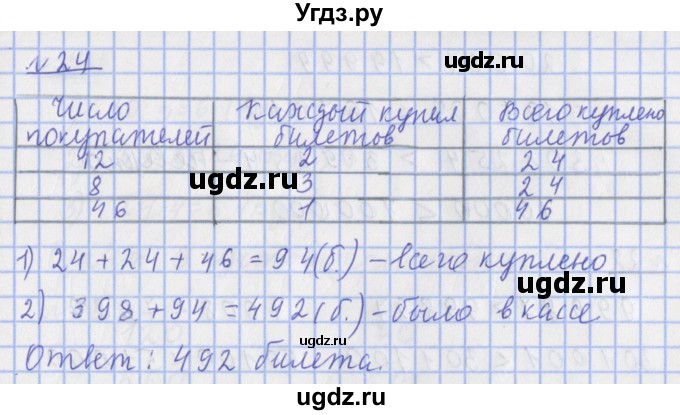 Угдз.ру
ugdz.ru ugdz.ru ugdz.ru
№ 24
Число покупателей | Каждый купил билетов | Всего куплено билетов
12 | 2 | 24
ugdz.ru
8 | 3 | 24
46 | 1 | 46
1) 24 + 24 + 46 = 94 (б) – всего куплено
ugdz.ru ugdz.ru
2) 398 + 94 = 492 (б.) – было в кассе
Ответ: 492 билета.
ugdz.ru ugdz.ru ugdz.ru